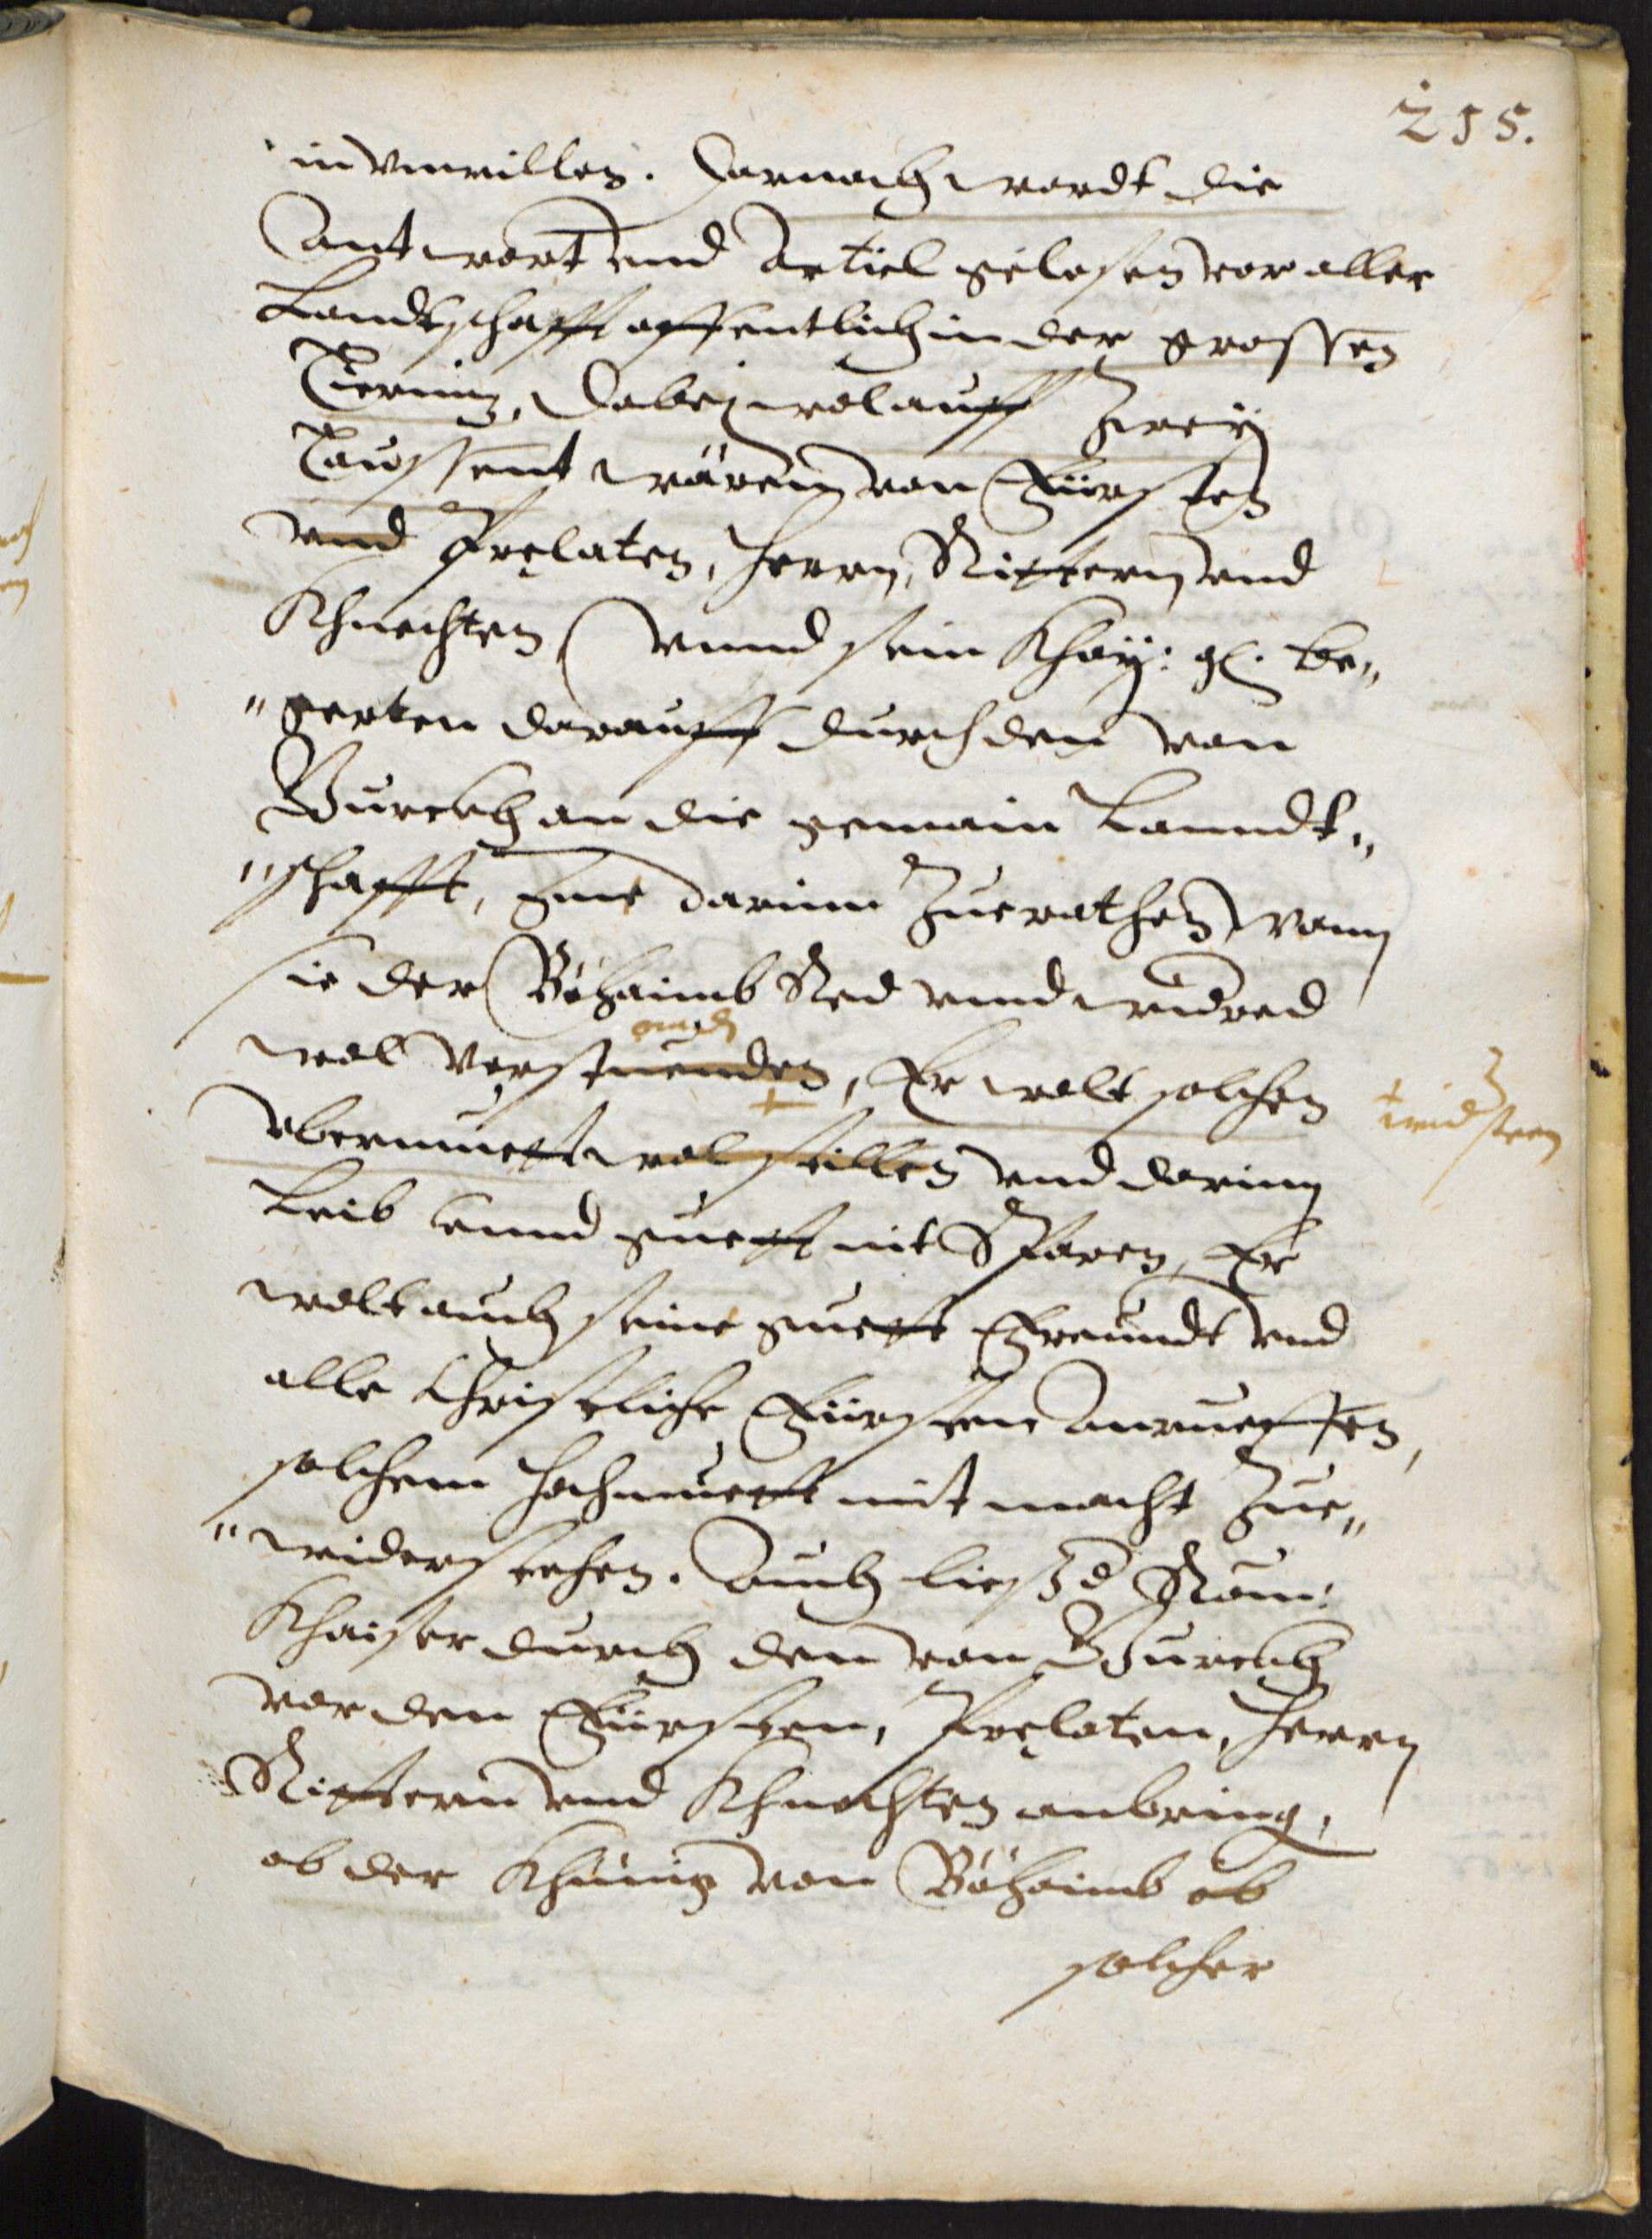 215.
in vnwillen. Darnach wardt die
Antwort vnd Artiel gelesen vor aller
Landtschafft offentlich in der grossen
Tierniz, Dabej wolauff Zweÿ
Taussent wären von Fürsten
vnd Prelaten, Herrn, Rittern vnd
Khnechten, vnnd sein Khaÿ: gl. be„
„gerten darauff durch den von
Wurckh an die gemain Lanndt„
„schafft, Ime darinn Zuerathen, wann
sie der Böhaimb Red vnnd widred
wol verstuenden, Er wolt solchen
vbermuett wol stillen vnd darinn
Leib vnnd guett nit Sparen, Er
wolt auch seine guette Freundt vnd
alle Christliche Fürsten Anrueffen,
solchem Hochmuett mit macht Zue„
„widerstehen. Auch liesß d Röm:
Khaiser durch den von Wurckh
vor den Fürsten, Prelaten, Herrn
Rittern vnd Khnechten anbring,
ob der Khünig von Böhaimb ob
solcher